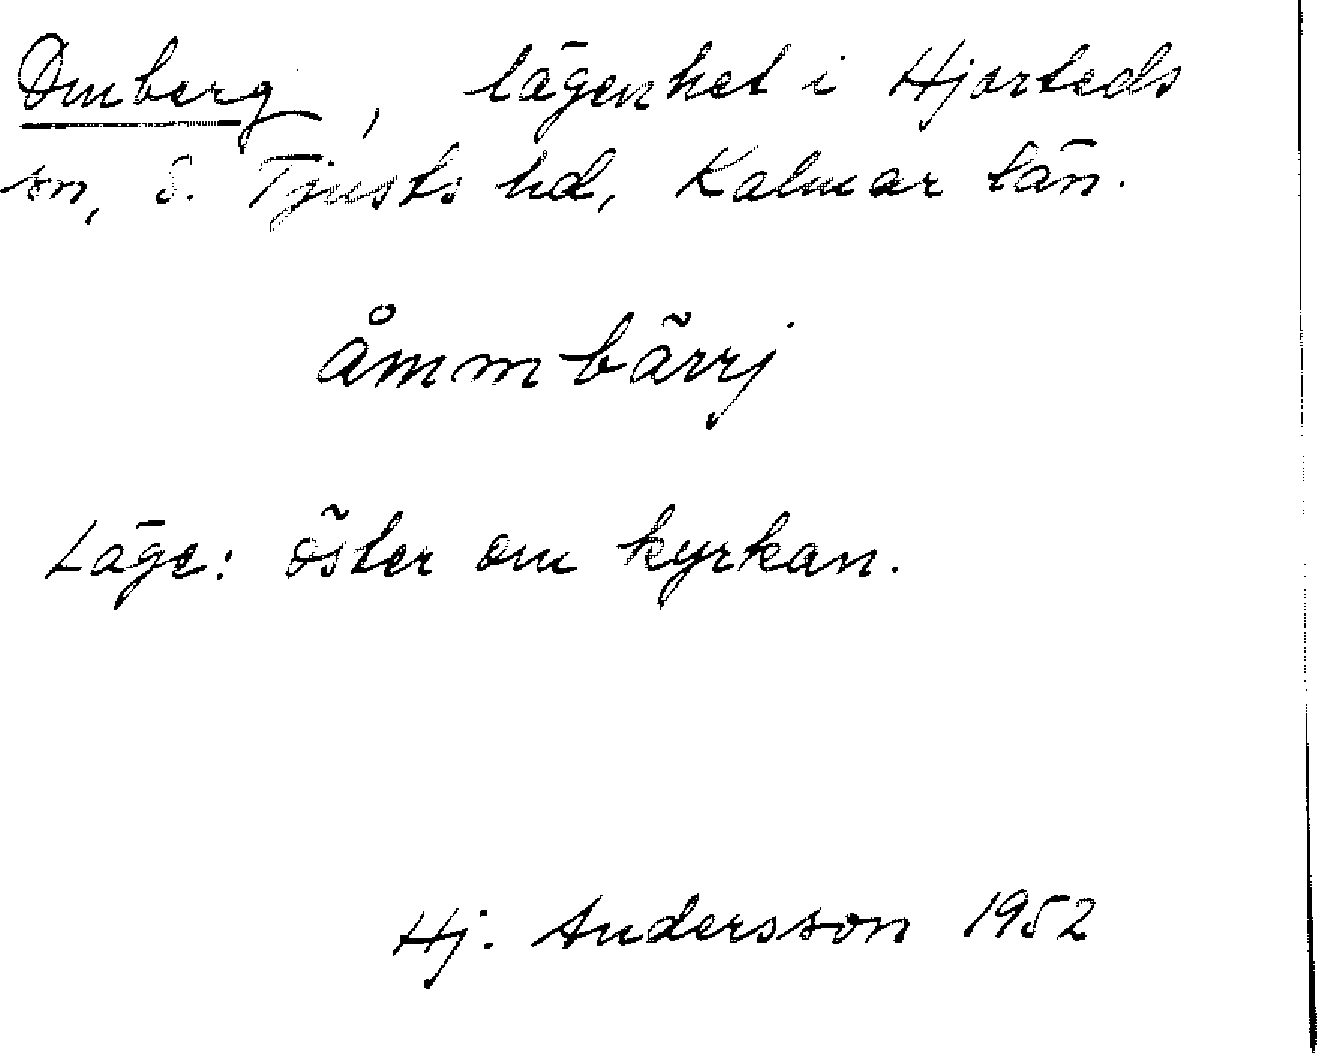 Omberg, lägenhet i Hjorteds
sn, S. Tjusts hd, Kalmar län.
åmmbärrj
Läge: öster om kyrkan.
Hj. Andersson 1952